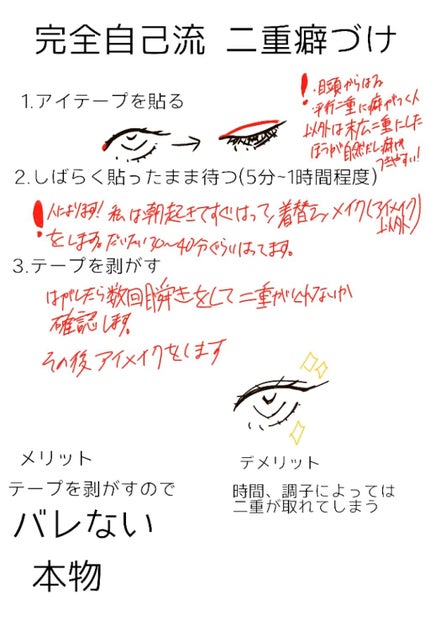 完全自己流 二重癖づけ
1.アイテープを貼る
!
・目頭からはる
平行二重に癖がつく人
以外は末広二重にした
ほうが自然だし癖も
つきやすい!
2.しばらく貼ったまま待つ(5分~1時間程度)
! 人によります!私は朝起きてすぐはって、着替え、メイク(アイメイク以外)
をします。だいたい30~40分ぐらいはってます。
3.テープを剥がす
はがしたら数回瞬きをして二重がとれないか
確認します。
その後アイメイクをします
メリット
テープを剥がすので
バレない
本物
デメリット
時間、調子によっては
二重が取れてしまう